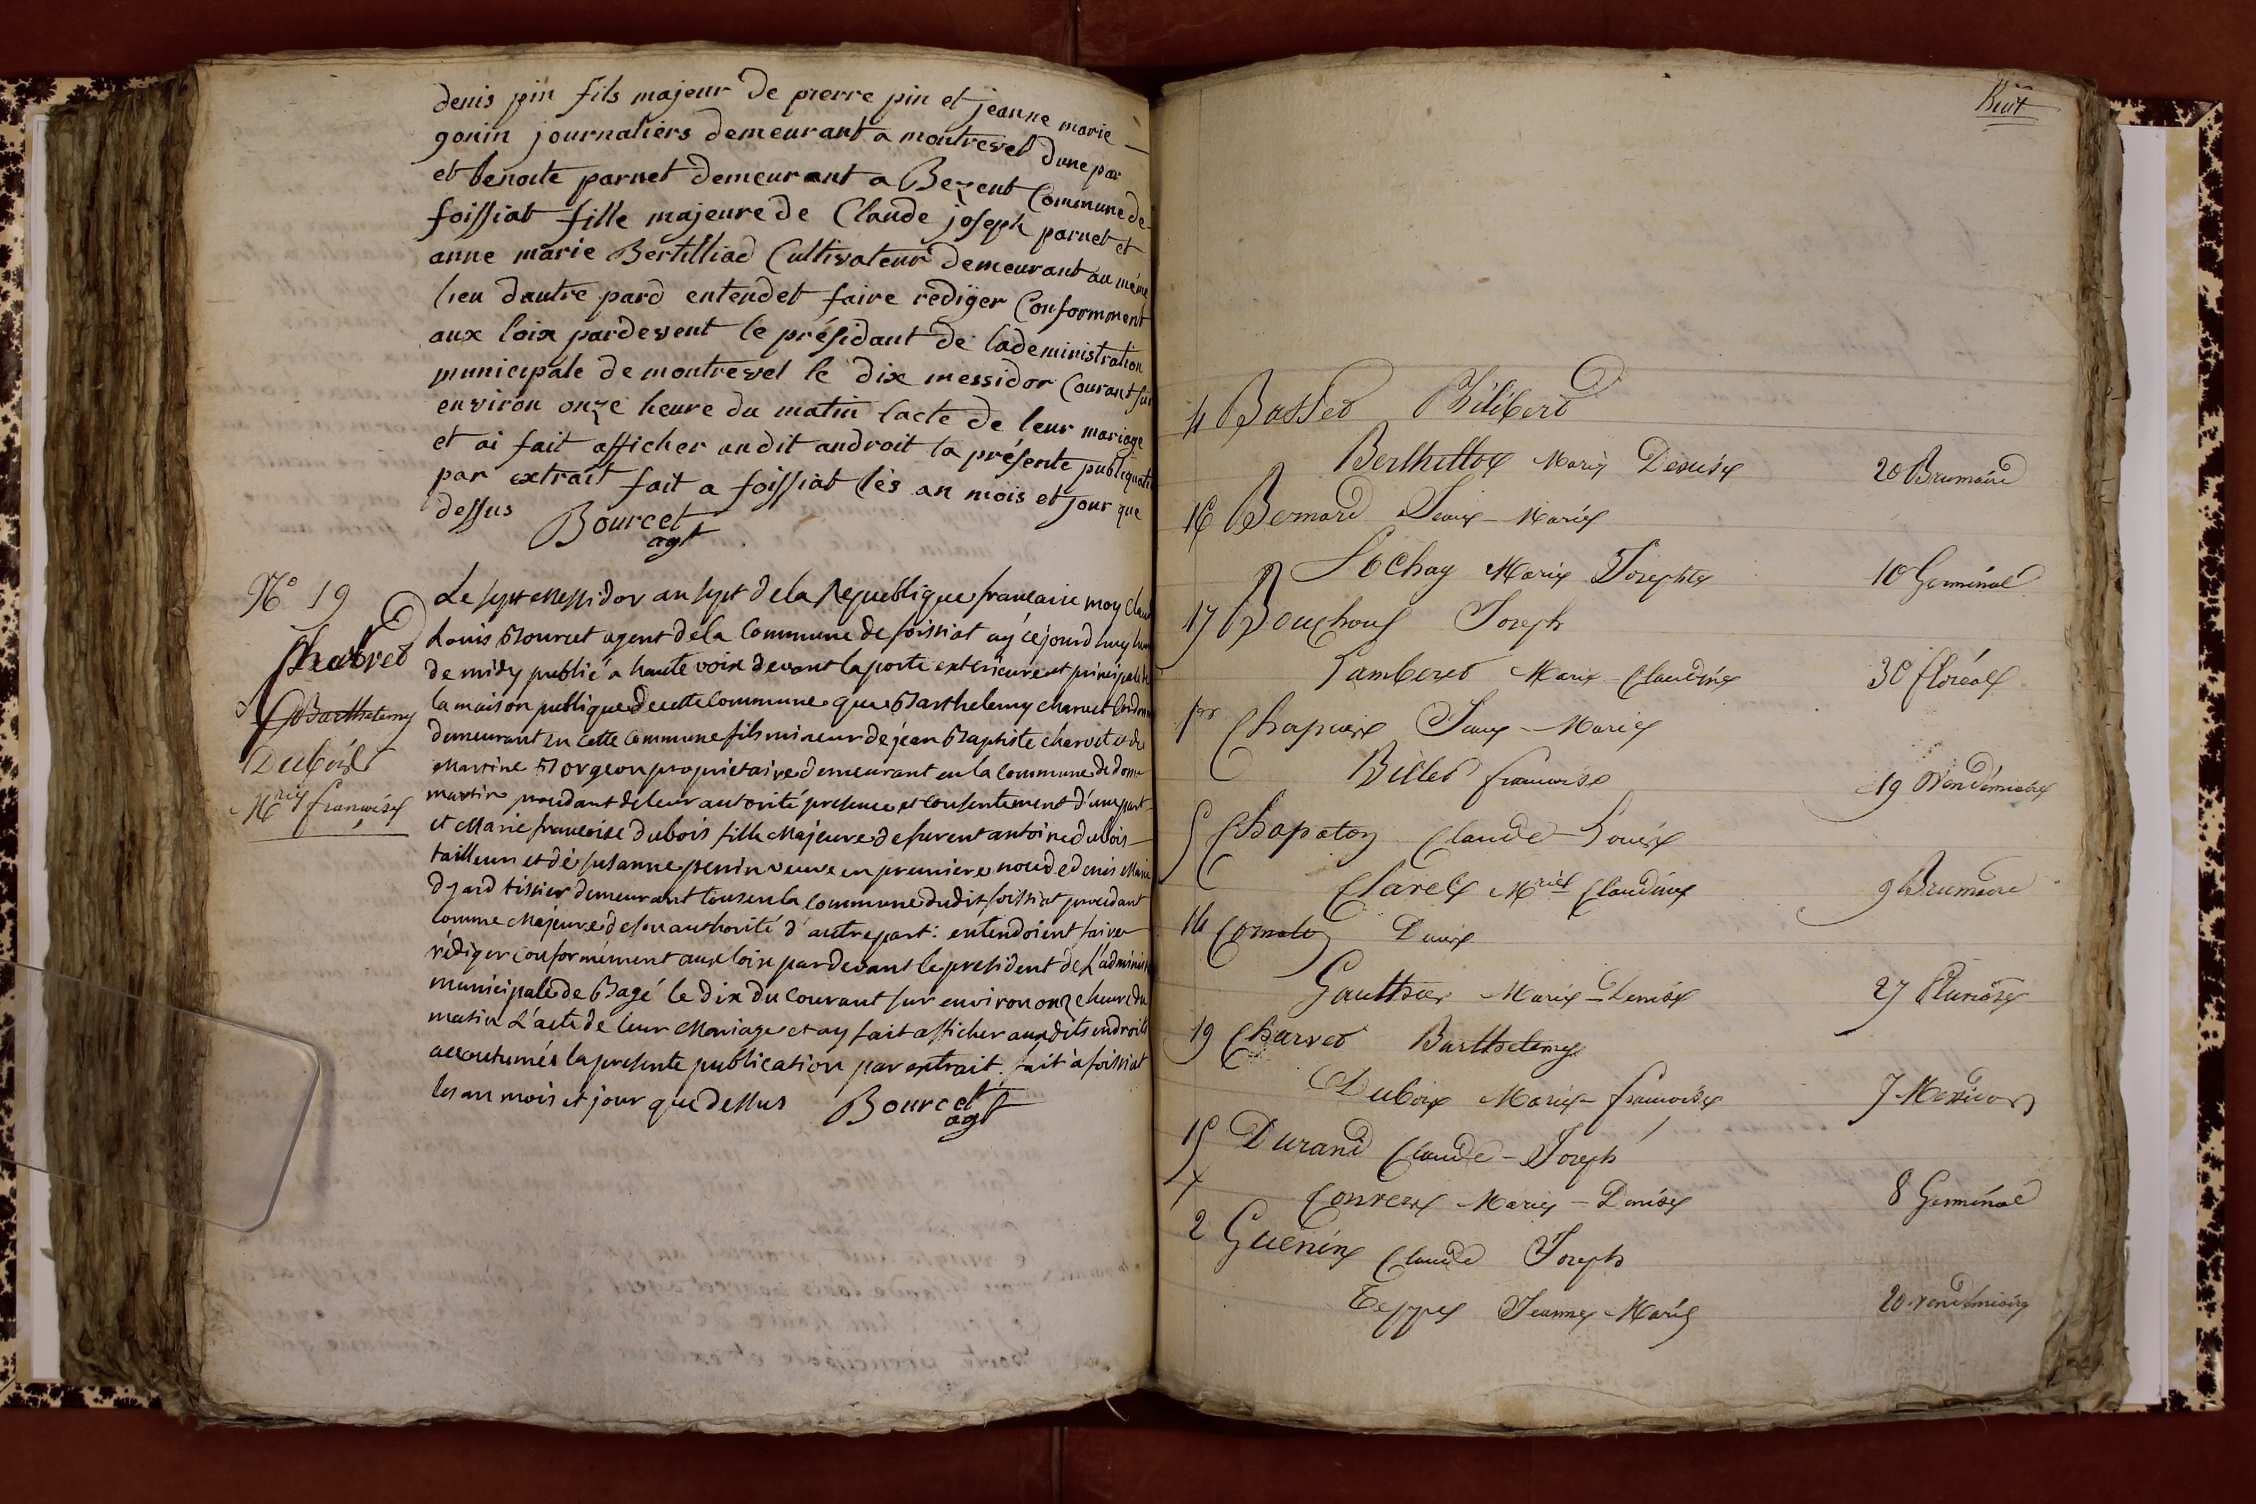 denis pin fils majeur de pierre pin et jeanne marie
gonin journaliers demeurant a montrevel dune par
et benoite parnet demeurant a Bezent Commune de
foissiat fille majeure de Claude joseph parnet et
anne marie Bertilliad Cultivateur demeurant au même
lieu dautre pard entendet faire rediger Conformment
aux loix pardevent le présidant de ladeministration
municipale de montrevel le dix messidor Courant sur
environ onze heure du matin lacte de leur mariage
et ai fait afficher audit androit la présente publiquati
par extrait fait a foissiat lès an mois et jour que
dessus Bourcet
agt
N° 19
Charved
Barthelemy
Dubois
Mrie françoise
Le sept Messidor an sept de la Republique francaise moy Claud
Louis Bourcet agent de la Commune de foissiat ay cejourd'huy
de midy publié a haute voix devant la porte exterieure et principale de
la maison publique de cette Commune que Barthelemy charvet
demeurant en cette Commune fils mineur de jéan Baptiste charvet et de
Martine Borgeon proprietaire demeurant en la Commune de dom
martin procedant de leur autorité presence et consentement d'une part
et Marie francoise dubois fille Majeure de furent antoine dubois
tailleur et de susanne perrin veuve en premiere noce de denis Marie
dzard tissier demeurant tous en la Commune dudit foissiat procedant
Comme Majeure de son authorité d'autre part: entendoient faire
rédiger conformément aux loix par devant le president de L'adminis
municipale de Bagé le dix du Courant sur environ onze heure du
matin L'acte de leur Mariage et ay fait afficher aux dits endroits
accoutumés la presente publication par extrait. fait à foissiat
les an mois et jour que dessus Bourcet
agt
huit
4 Basset Philiberd
Berthillod Marie Denise 20 Brumaire
16 Bernard Jean-Marie
Lochay Marie Josephte 10 Germinal
17 Bouchoux Joseph
Lambered Marie-Claudine 30 floréal
1er Chapuis Jean-Marie
Billed francoise 19 Vendémiaire
5 Chapaton Claude-Louis
Clarel Mrie Claudine 9 Brumaire
14 Comaton Denis
Gauthier Marie-Denise 27 Pluviôse
19 Charved Barthelemy
Dubois Marie francoise 7 Messidor
15 Durand Claude-Joseph
Convers Marie-Denise 8 Germinal
2 Guenin Claude Joseph
Teppe Jeanne-Marie 20 vendémiaire